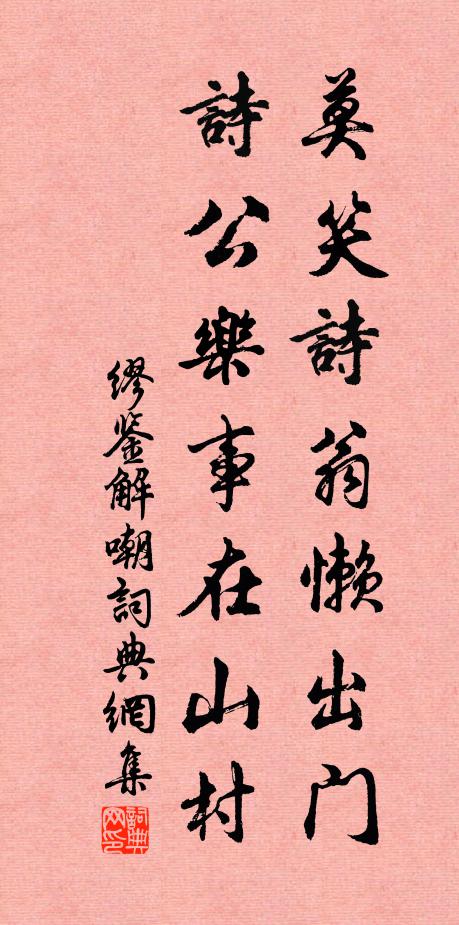 莫笑詩翁懶出門
詩公樂事在山村
缪鉴解嘲詞典網集
詞典网印